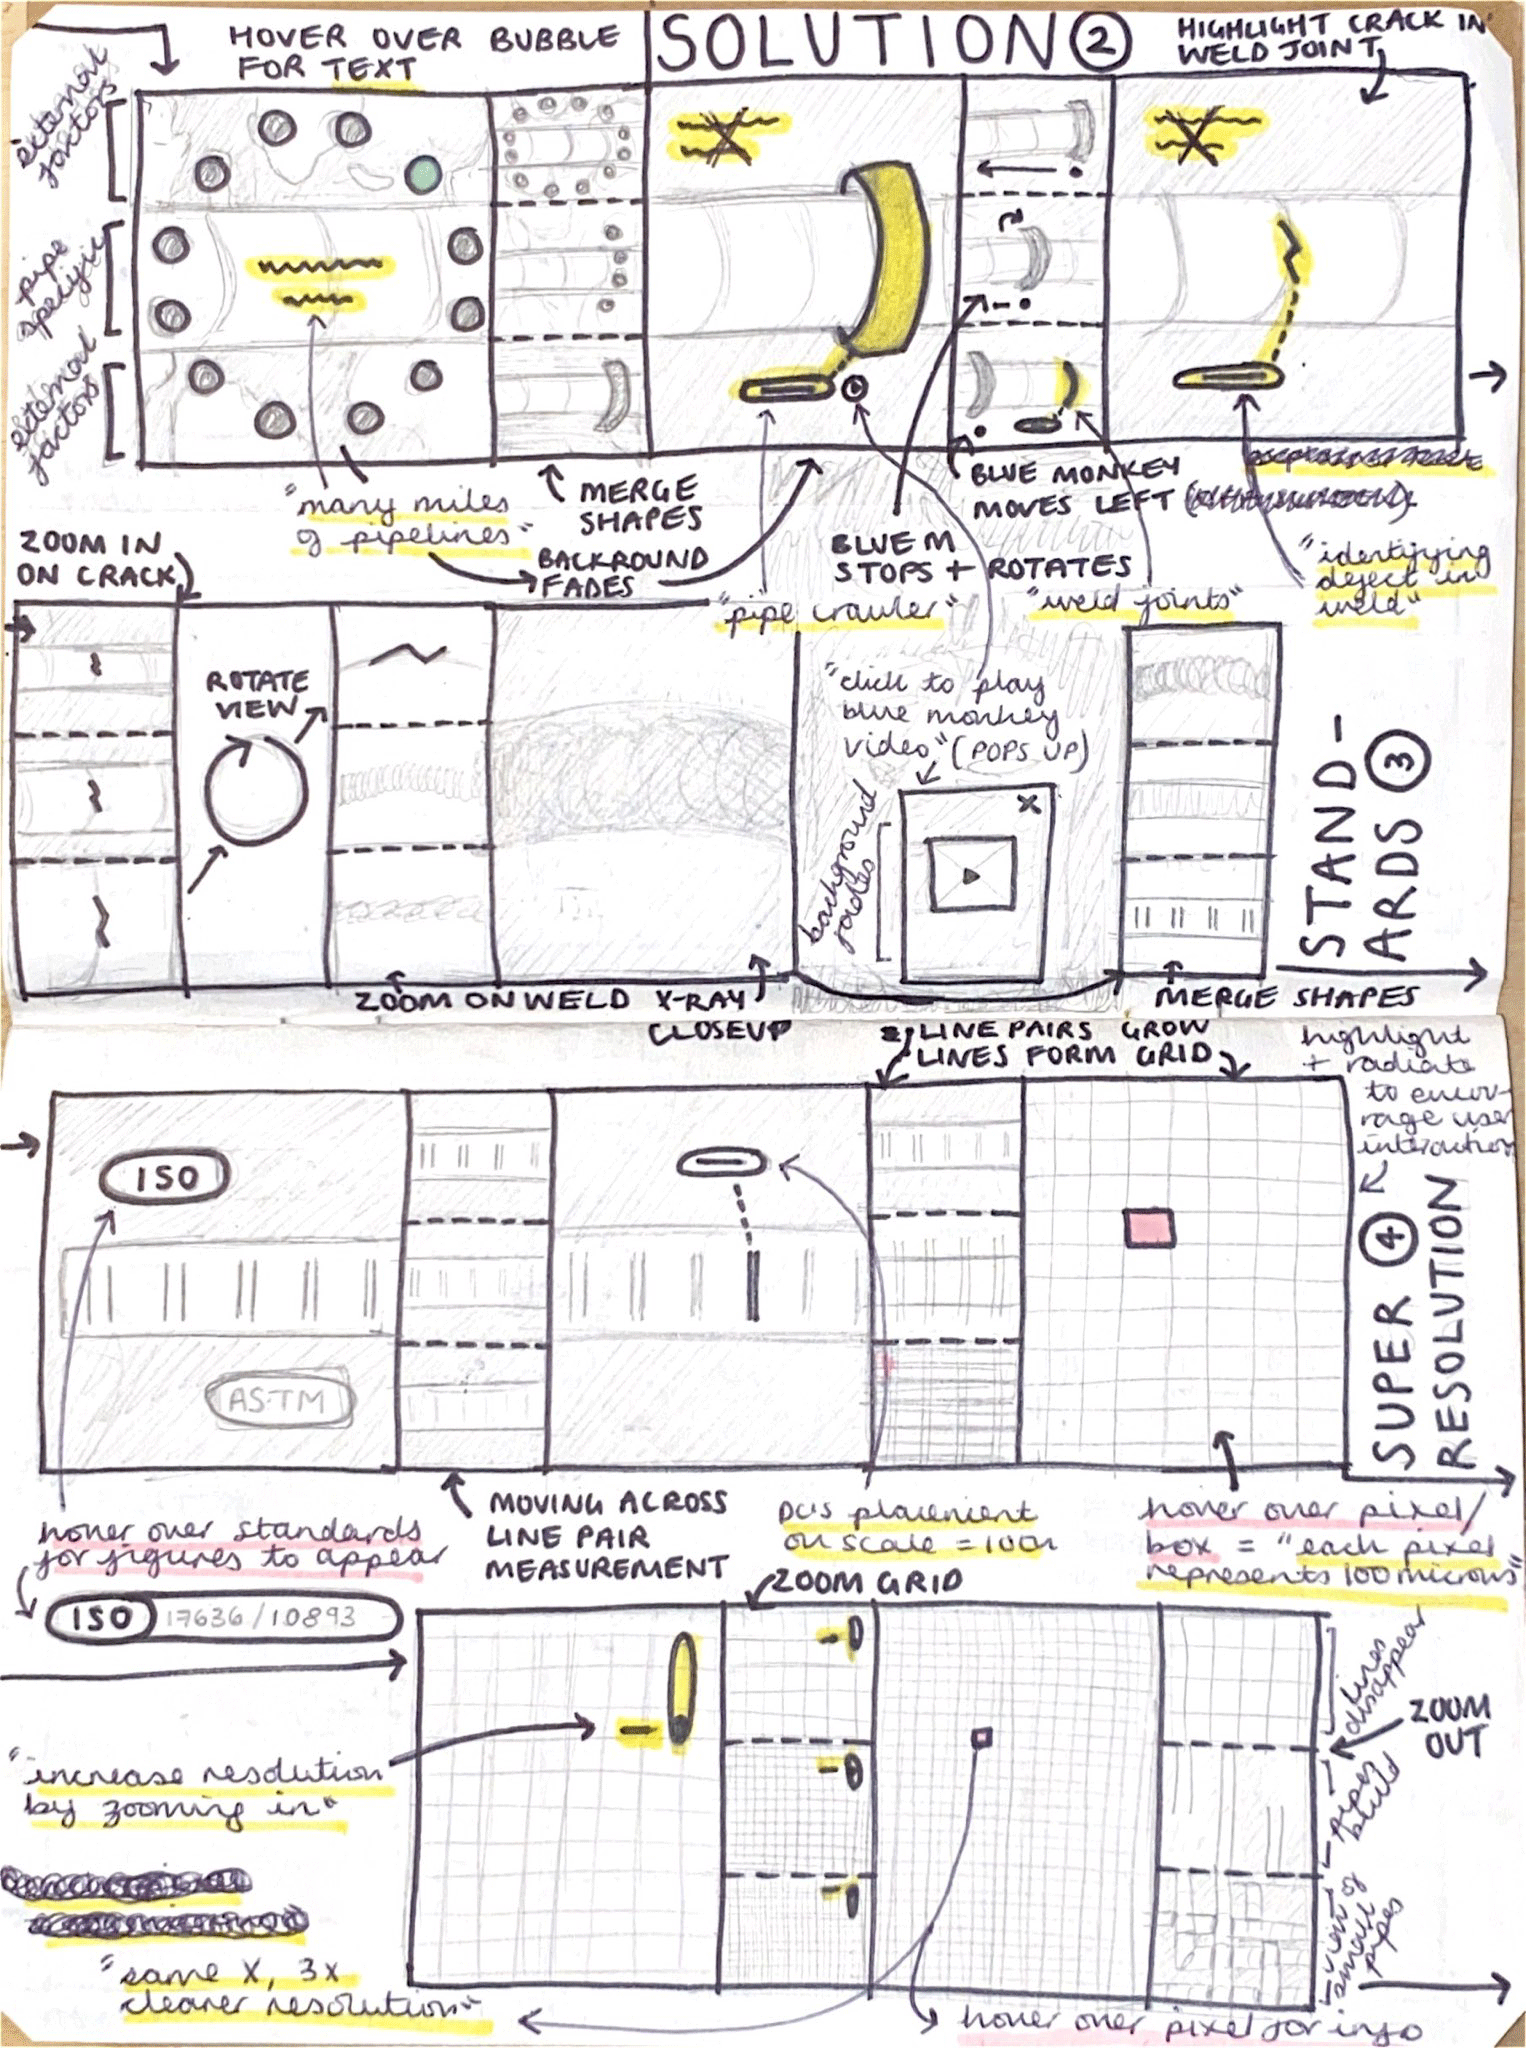 HOVER OVER BUBBLE
FOR TEXT
SOLUTION 2
HIGHLIGHT CRACK IN
WELD JOINT
external
factors
pipe
specific
external
factors
"many miles
of pipelines"
MERGE
SHAPES
BACKROUND
FADES
"pipe crawler"
BLUE M
STOPS + ROTATES
BLUE MONKEY
MOVES LEFT
"weld joints"
"identifying
defect in
weld"
ZOOM IN
ON CRACK
ROTATE
VIEW
"click to play
blue monkey
video" (POPS UP)
x
background
fades
ZOOM ON WELD X-RAY
CLOSEUP
MERGE SHAPES
STAND-
ARDS 3
LINE PAIRS GROW
LINES FORM GRID
highlight
+ radiate
to encou-
rage user
interaction
ISO
ASTM
SUPER 4
RESOLUTION
hover over standards
for figures to appear
MOVING ACROSS
LINE PAIR
MEASUREMENT
placement
on scale =
hover over pixel/
box = "each pixel
represents 100 microns"
ISO 17636/10893
ZOOM GRID
"increase resolution
by zooming in"
lines
disappear
ZOOM
OUT
pipes
build
view of
small
pipes
"same X, 3x
clearer resolution"
hover over pixel for info